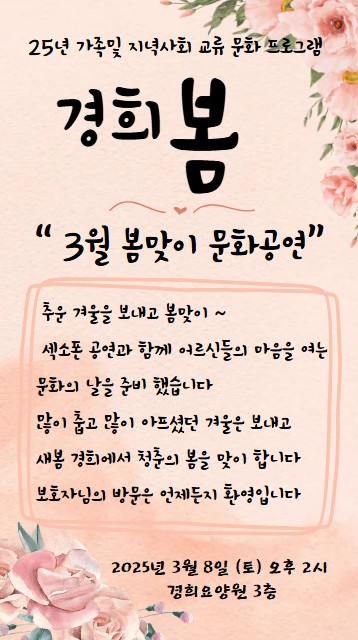 25년 가족및 지녁사회 교류 문화 프로그램
경희봄
“ 3월 봄맞이 문화공연”
추운 겨울을 보내고 봄맞이 ~
섹소폰 공연과 함께 어르신들의 마음을 여는
문화의 날을 준비 했습니다
많이 춥고 많이 아프셨던 겨울은 보내고
새봄 경희에서 청춘의 봄을 맞이 합니다
보호자님의 방문은 언제든지 환영입니다
2025년 3월 8일 (토) 오후 2시
경희요양원 3층